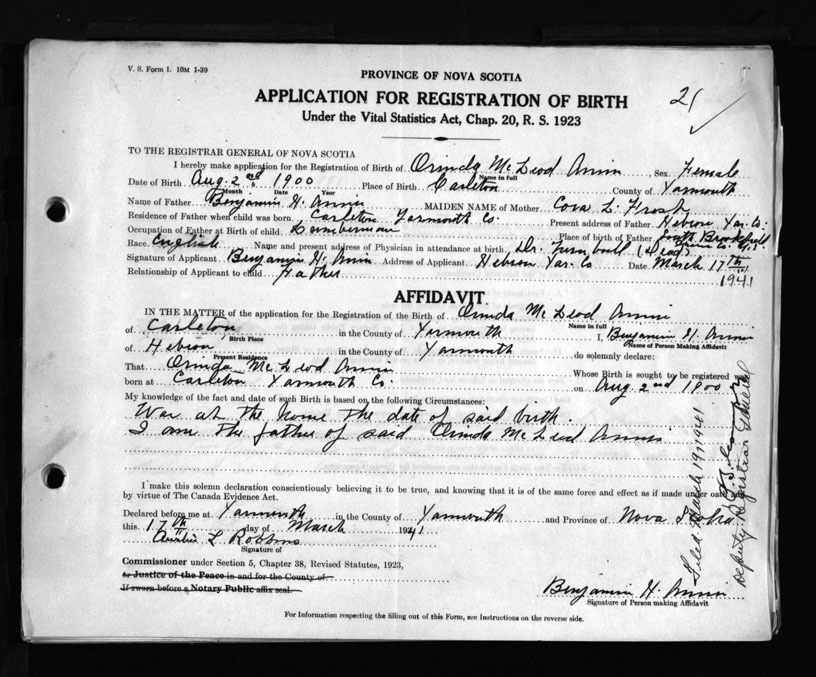 V. S. Form 1. 10M 1-39
PROVINCE OF NOVA SCOTIA
APPLICATION FOR REGISTRATION OF BIRTH
Under the Vital Statistics Act, Chap. 20, R. S. 1923
TO THE REGISTRAR GENERAL OF NOVA SCOTIA
I hereby make application for the Registration of Birth of Orinda McLeod Annis Sex Female
Name in full
Date of Birth Aug. 2nd 1900 Place of Birth Carleton County of Yarmouth
Month Date Year
Name of Father Benjamin H. Annis MAIDEN NAME of Mother Cora L. Frost
Residence of Father when child was born Carleton Yarmouth Co. Present address of Father Hebron Yar. Co.
Occupation of Father at Birth of child Lumberman Place of birth of Father South Brookfield
Race English Name and present address of Physician in attendance at birth Dr. Turnbull (Dead)
Signature of Applicant Benjamin H. Annis Address of Applicant Hebron Yar. Co Date March 17th
Relationship of Applicant to child Father 1941
AFFIDAVIT
IN THE MATTER of the application for the Registration of the Birth of Orinda McLeod Annis
Name in full
of Carleton in the County of Yarmouth I, Benjamin H. Annis
Birth Place Name of Person Making Affidavit
of Hebron in the County of Yarmouth do solemnly declare:
Present Residence
That Orinda McLeod Annis Whose Birth is sought to be registered was
born at Carleton Yarmouth Co. on Aug. 2nd 1900
My knowledge of the fact and date of such Birth is based on the following Circumstances:
Was at the home the date of said birth.
I am the father of said Orinda McLeod Annis
I make this solemn declaration conscientiously believing it to be true, and knowing that it is of the same force and effect as if made under oath and
by virtue of The Canada Evidence Act.
Declared before me at Yarmouth in the County of Yarmouth and Province of Nova Scotia
this 17th day of March 1941
L Robbins
Signature of
Commissioner under Section 5, Chapter 38, Revised Statutes, 1923,
or Justice of the Peace in and for the County of
If sworn before a Notary Public affix seal.
Benjamin H. Annis
Signature of Person making Affidavit
For Information respecting the filling out of this Form, see Instructions on the reverse side.
Filed March 19, 1941
Deputy Registrar General